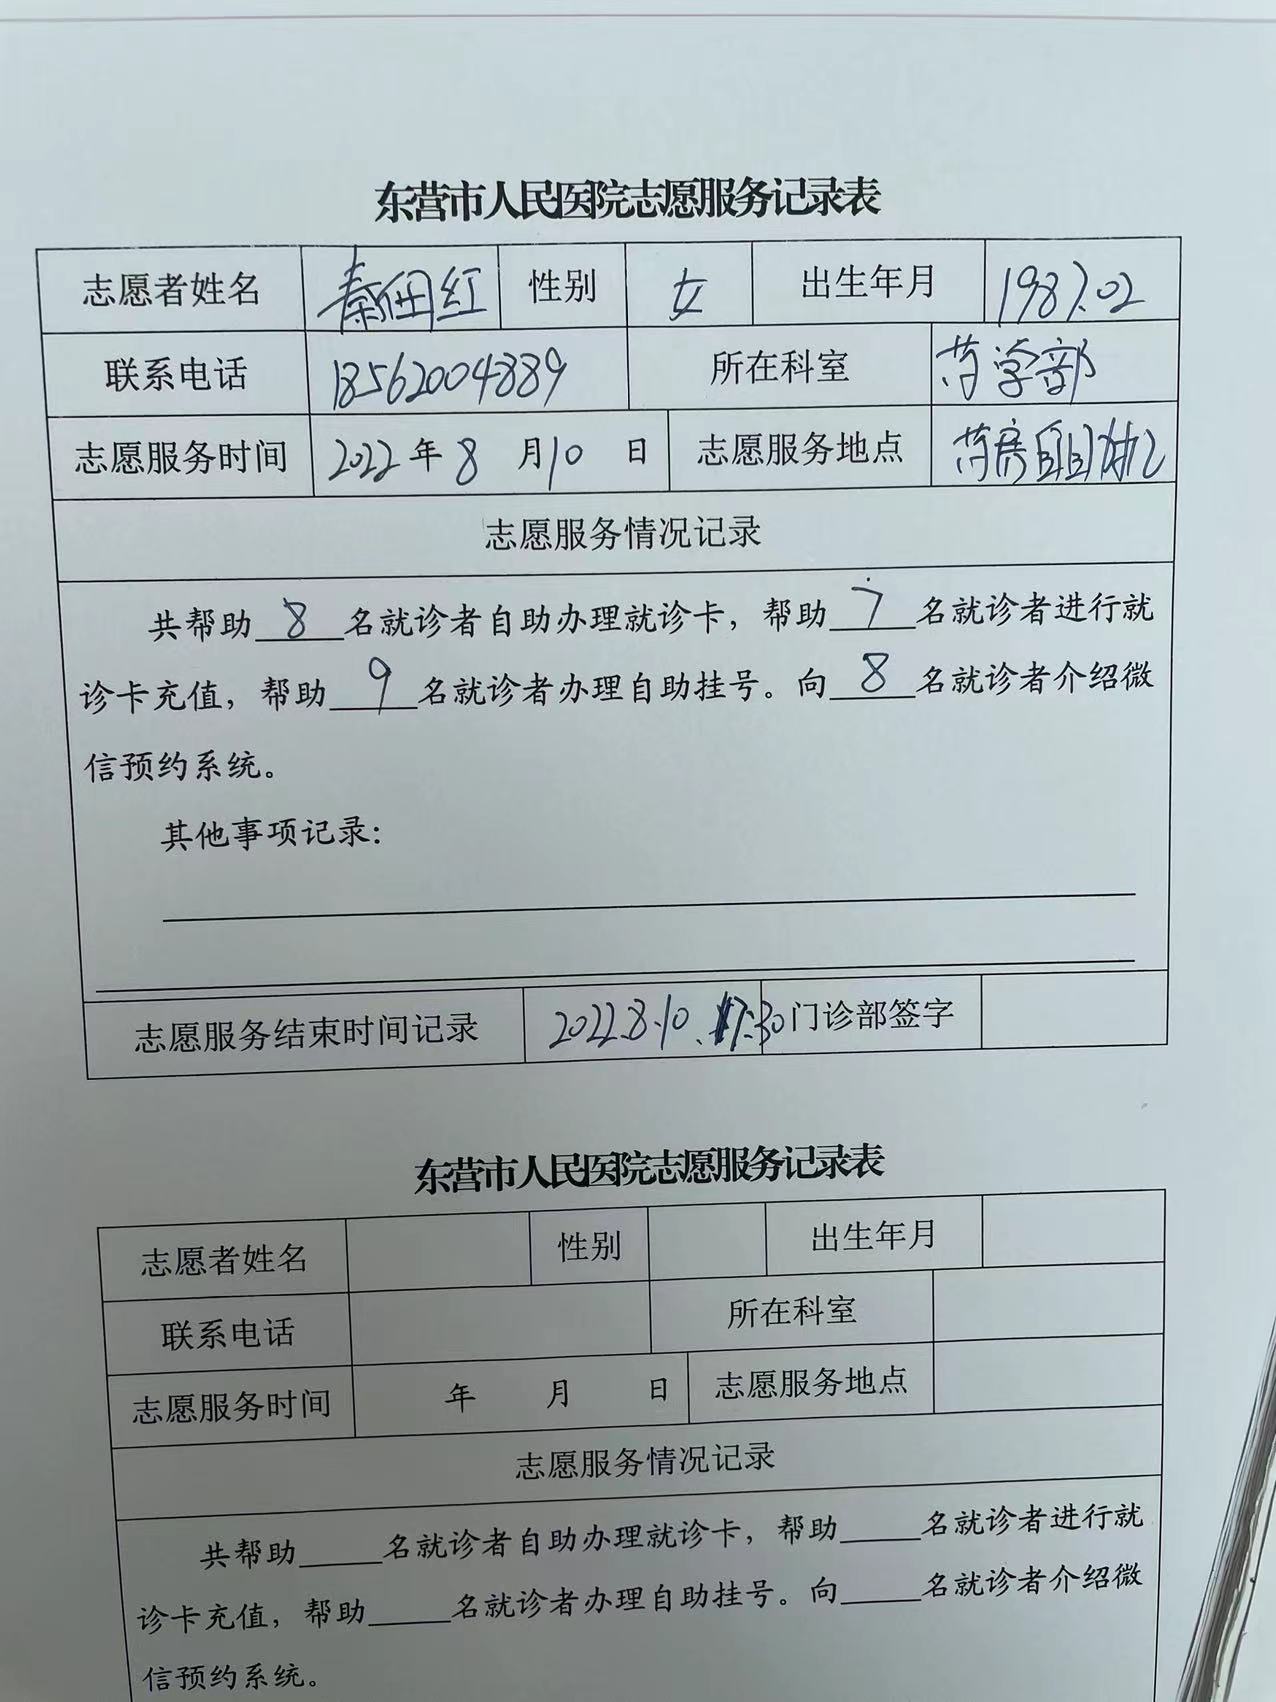 东营市人民医院志愿服务记录表
志愿者姓名 秦佃红 性别 女 出生年月 1987.02
联系电话 18562004889 所在科室 药学部
志愿服务时间 2022年8月10日 志愿服务地点 药房自助机
志愿服务情况记录
共帮助8名就诊者自助办理就诊卡，帮助7名就诊者进行就
诊卡充值，帮助9名就诊者办理自助挂号。向8名就诊者介绍微
信预约系统。
其他事项记录：
志愿服务结束时间记录 2022.8.10. 17:30 门诊部签字
东营市人民医院志愿服务记录表
志愿者姓名 性别 出生年月
联系电话 所在科室
志愿服务时间 年 月 日 志愿服务地点
志愿服务情况记录
共帮助_____名就诊者自助办理就诊卡，帮助_____名就诊者进行就
诊卡充值，帮助_____名就诊者办理自助挂号。向_____名就诊者介绍微
信预约系统。